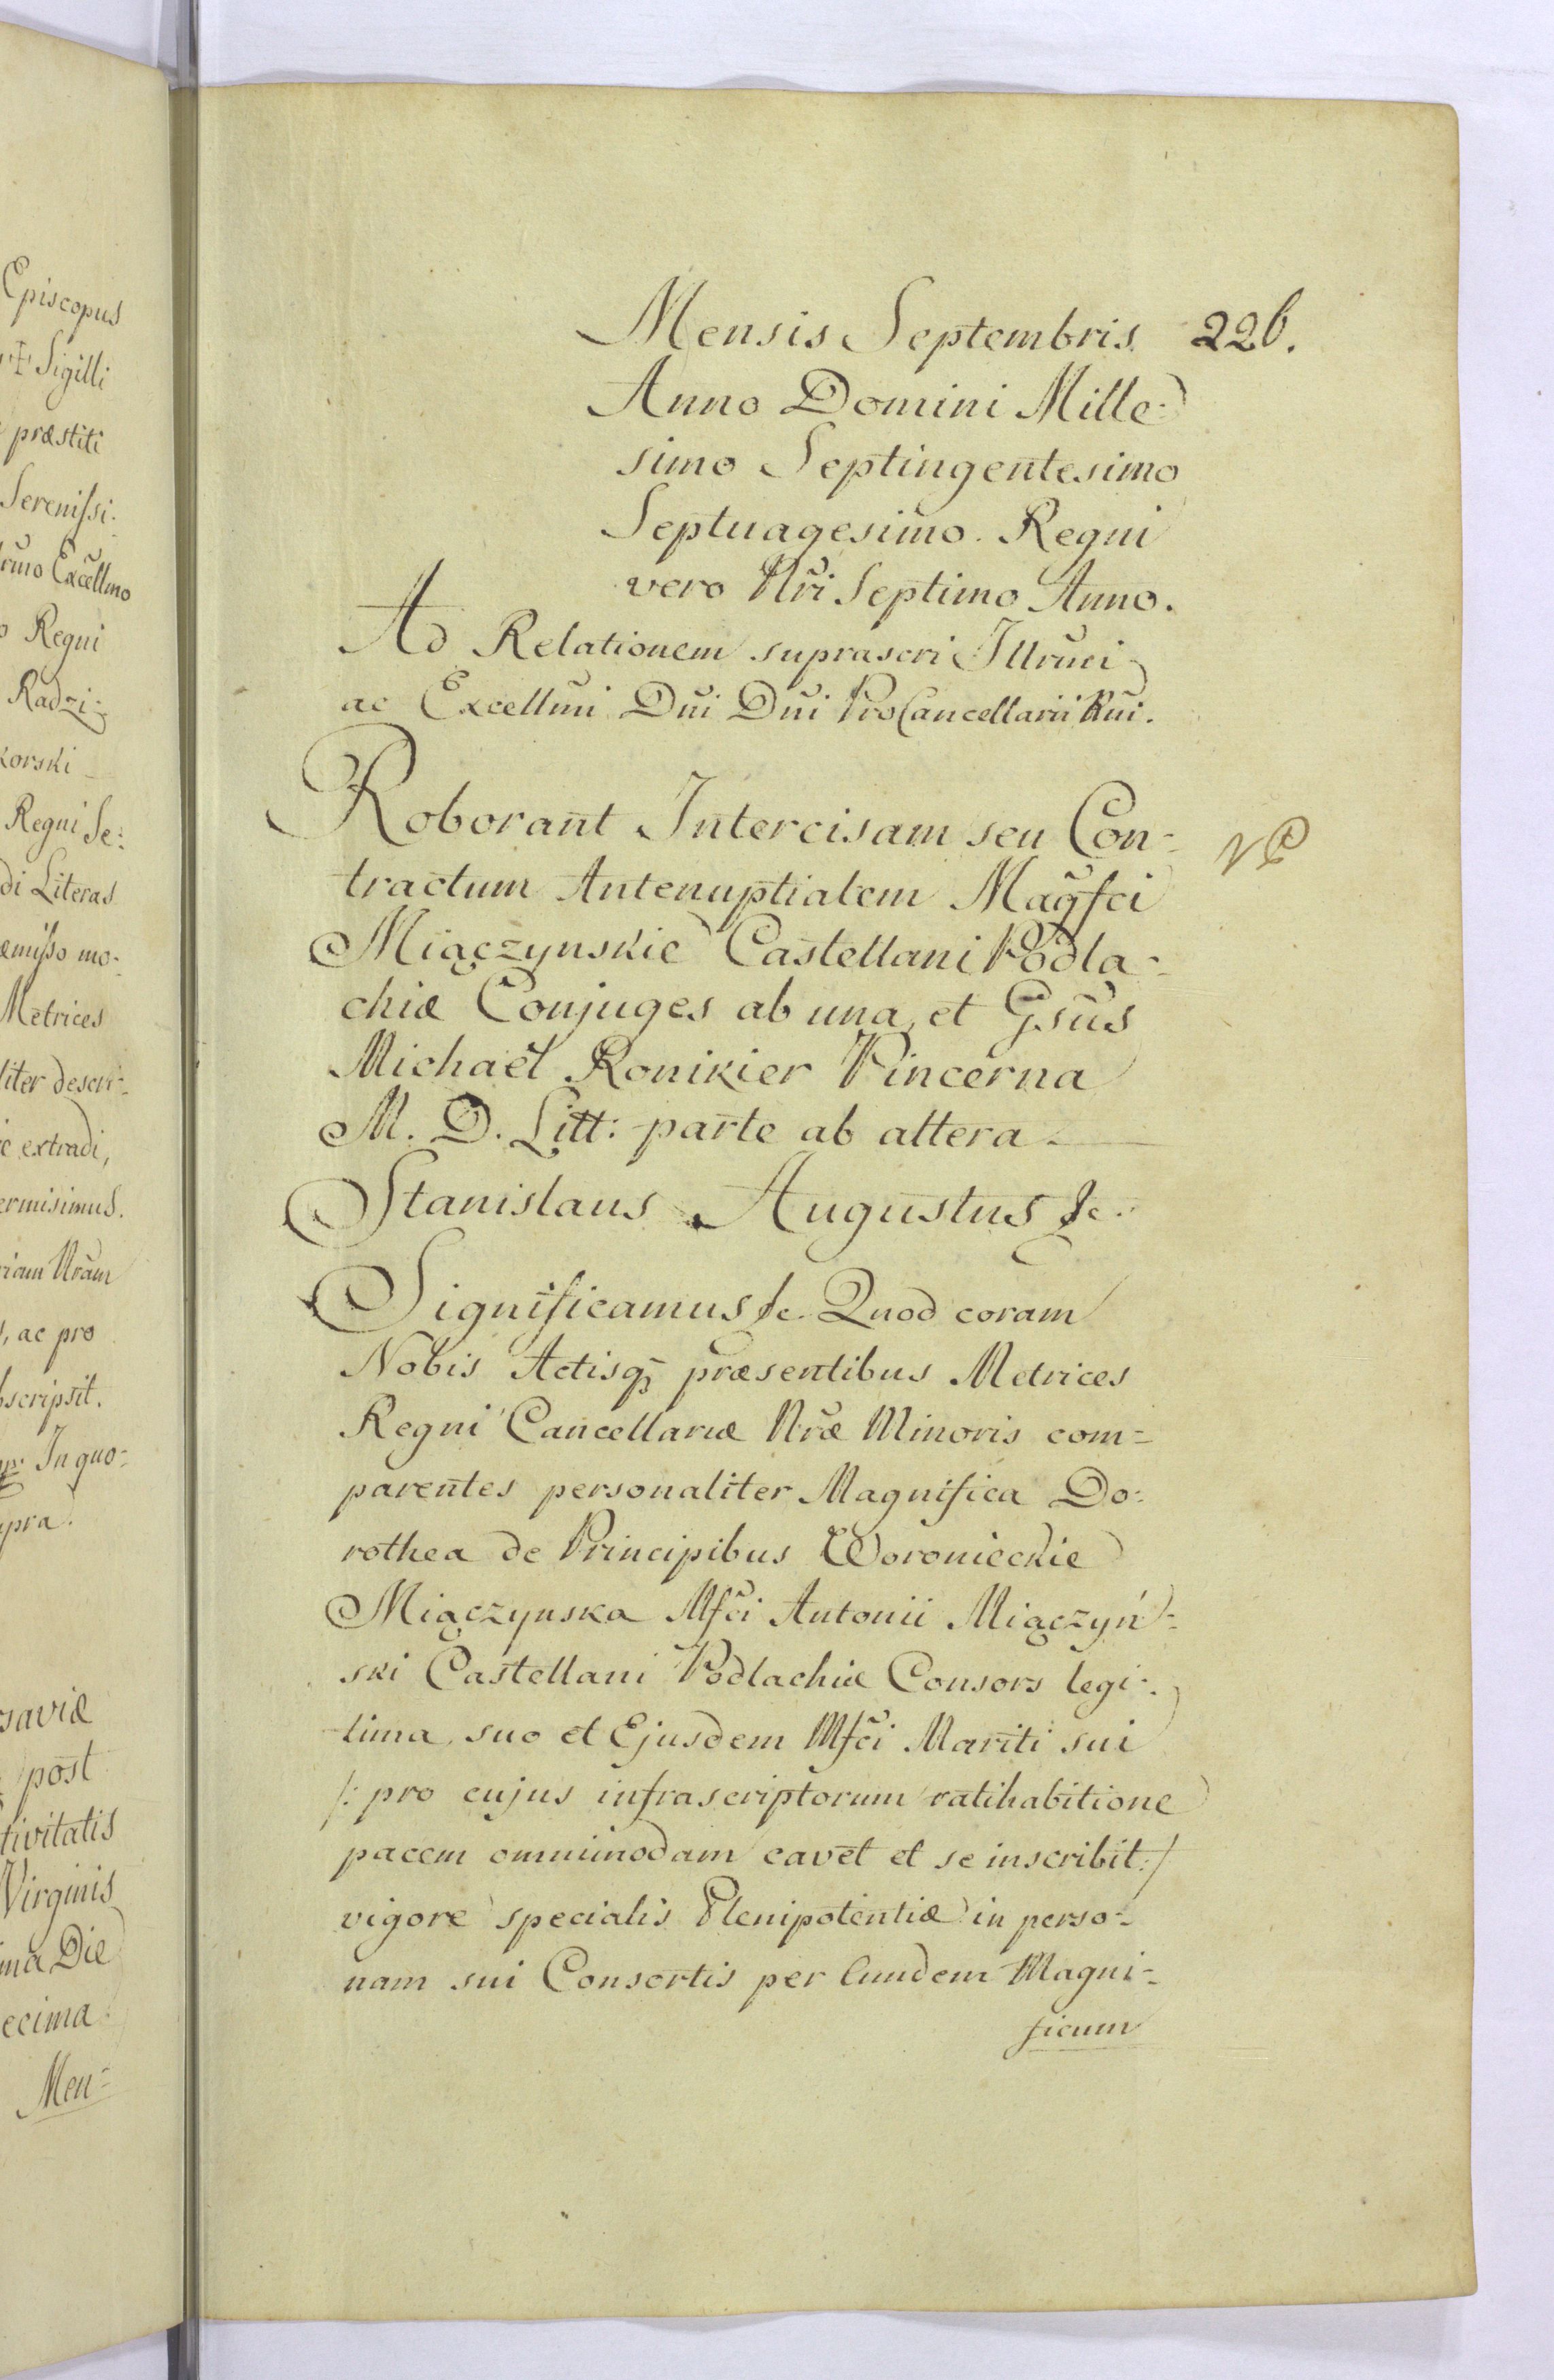 Episcopus
Sigilli
præstiti
Serenissi:
Excellmo
Regni
Radzi:
korski
Regni Se:
di Literas
æmisso mo:
Metrices
liter descri:
extradi,
ermisimus.
riam Nram
, ac pro
bscripsit.
In quo:
pra.
saviæ
post
tivitatis
Virginis
ma Die
ecima
Men=
Mensis Septembris 226.
Anno Domini Mille:
simo Septingentesimo
Septuagesimo. Regni
vero Nri Septimo Anno.
Ad Relationem suprascri Illrmi
ac Excellmi Dni Dni ProCancellarii Rni.
Roborant Intercisam seu Con=
tractum Antenuptialem Magfci
Miączynskie Castellani Podla:
chiæ Conjuges ab una, et Gsus
Michaël Ronikier Pincerna
M. D. Litt: parte ab altera
Stanislaus Augustus &c.
Significamus &c. Quod coram
Nobis Actisq; præsentibus Metrices
Regni Cancellariæ Nræ Minoris com=
parentes personaliter Magnifica Do:
rothea de Principibus Woronieckie
Miączynska Mfci Antonii Miączyń=
ski Castellani Podlachiæ Consors legi:
tima, suo et Ejusdem Mfci Mariti sui
/: pro cujus infrascriptorum ratihabitione
pacem omnimodam cavet et se inscribit :/
vigore specialis Plenipotentiæ in perso=
nam sui Consortis per Eundem Magni=
ficum